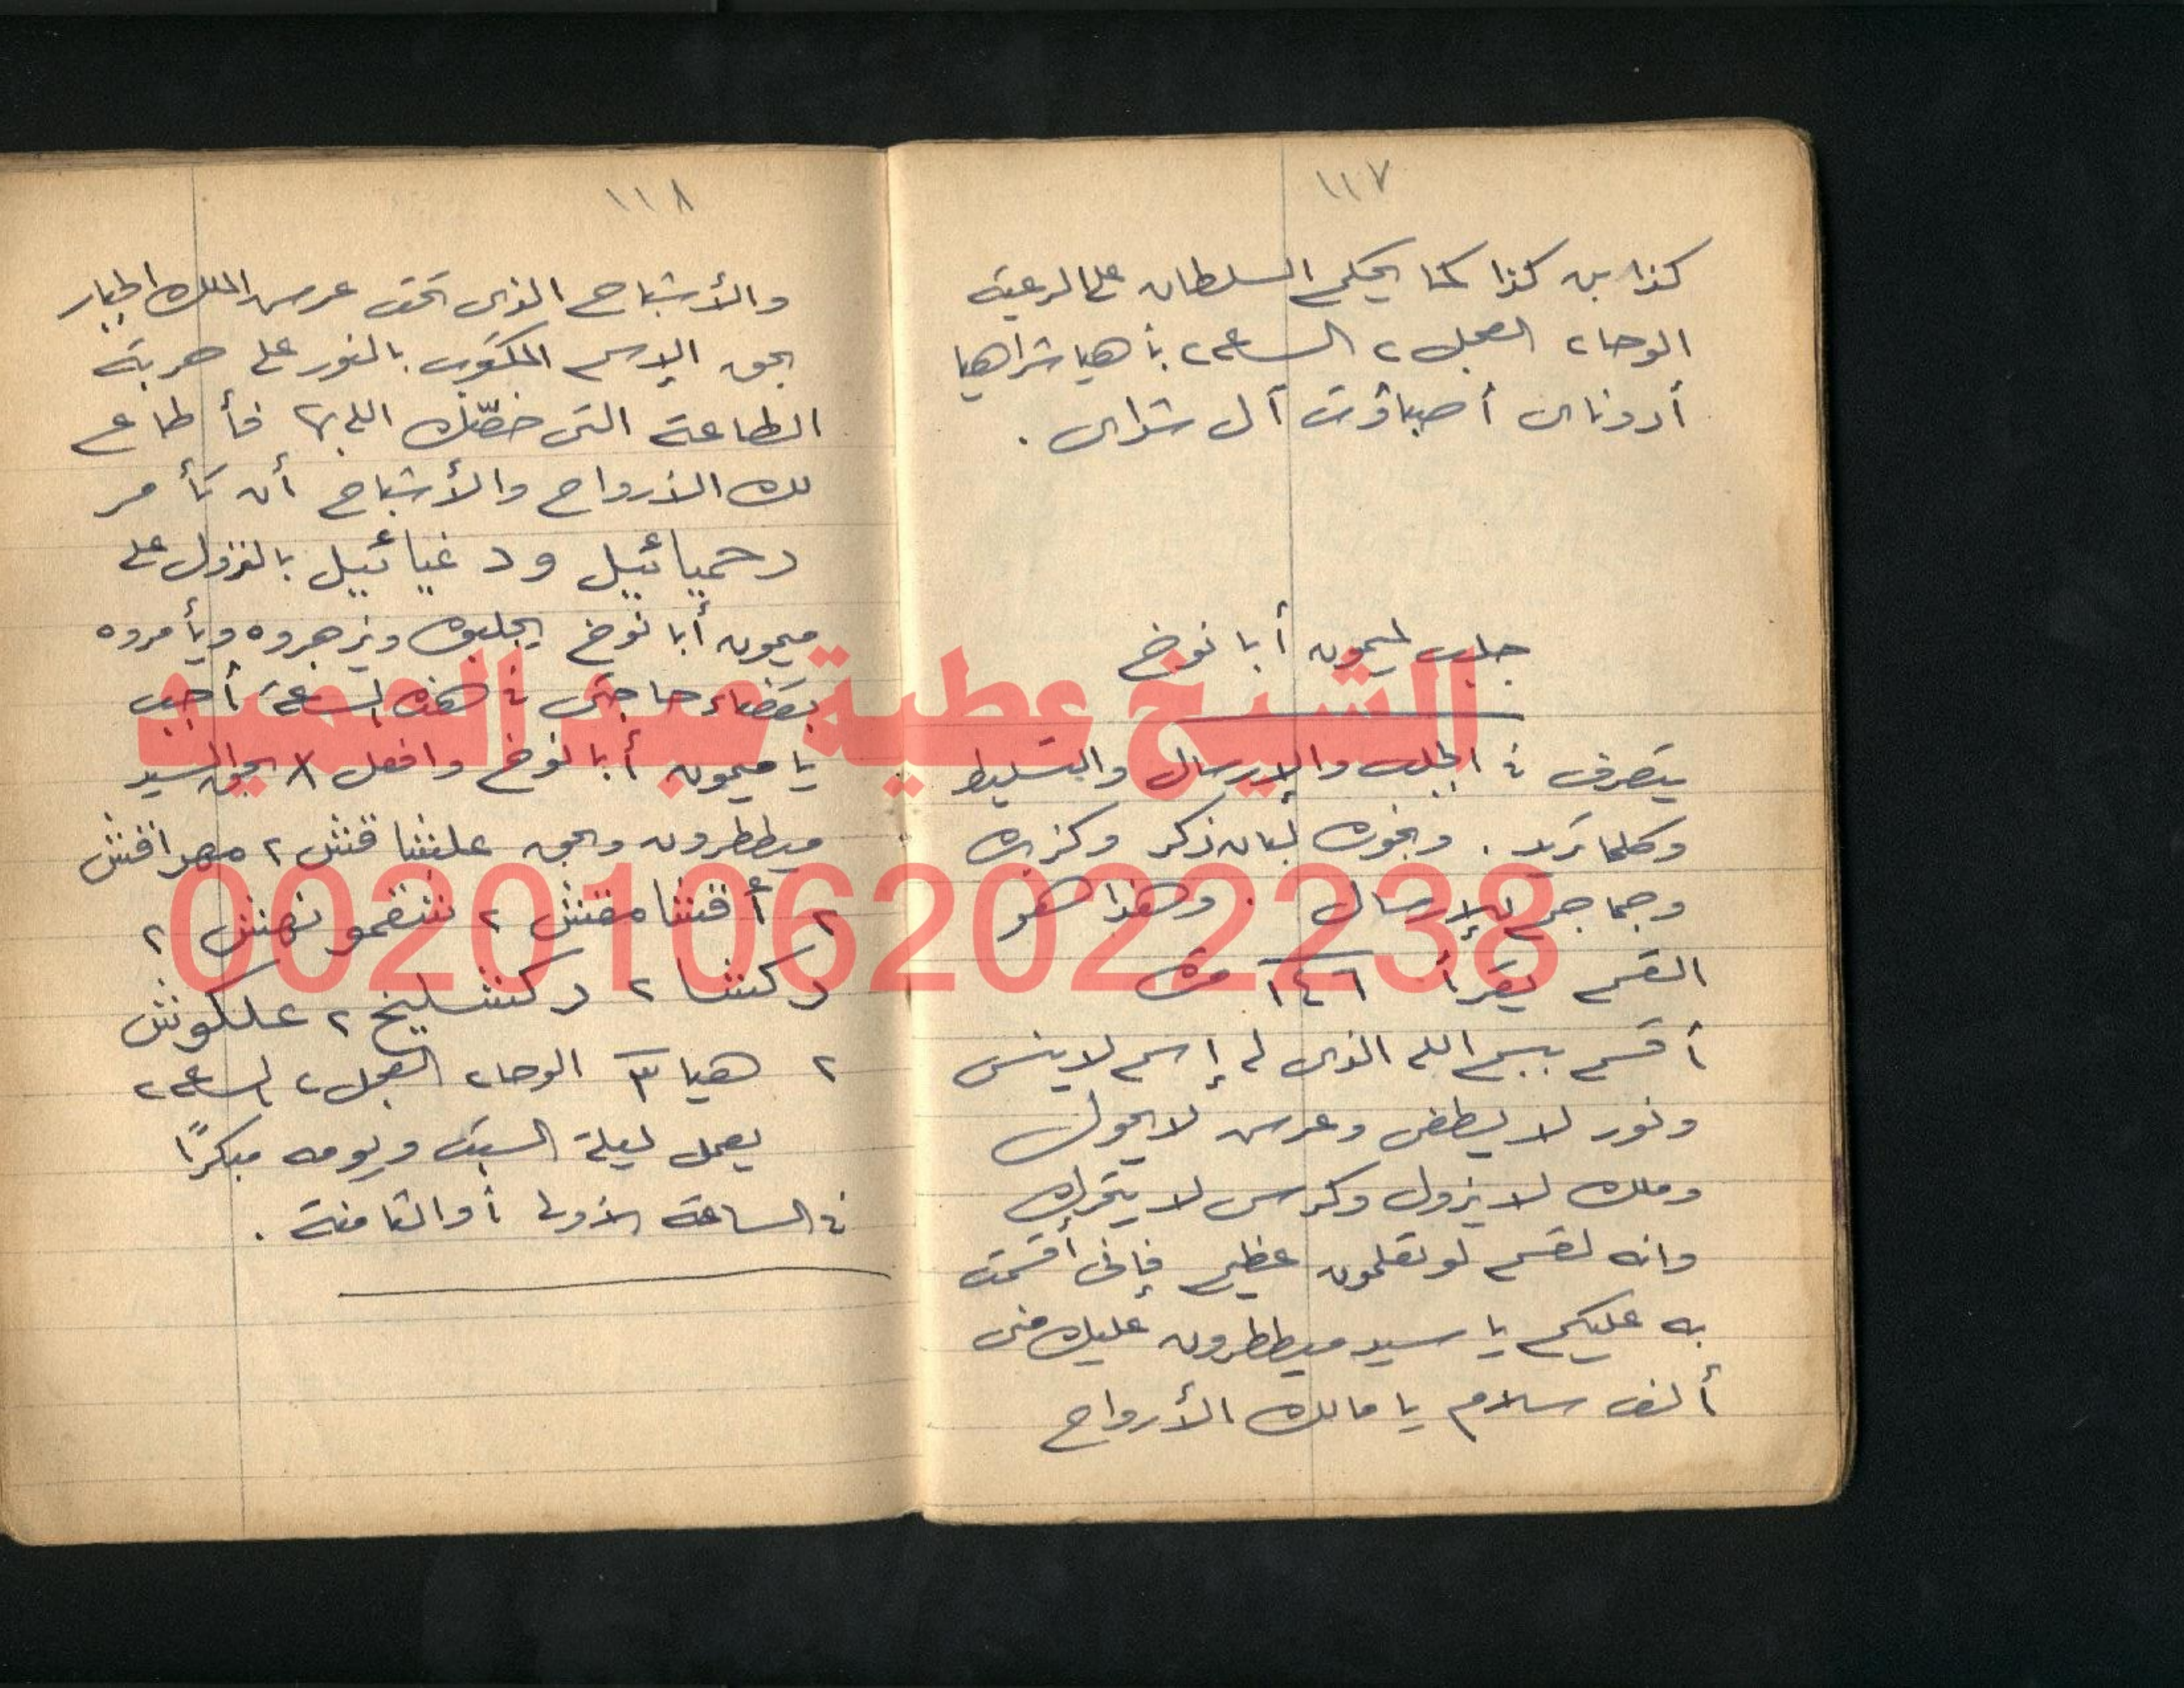 ١١٧
كذا بن كذا كما يحكم السلطان على الرعية
الوحا ٢ العجل ٢ الساعة ٢ بأهيا شراهيا
أدوناى أصباؤت آل شداى .
جلب لميمون أبا نوخ
يتصرف فى الجلب والإرسال والتسليط
وكلما تريد . وبخوره لبان ذكر وكزبره
وجماجم للإرسال . وهذا هو
القسم يقرأ ١٤٦ مرة
أقسم ببسم الله الذى له إسم لا ينسى
ونور لا يطفى وعرش لا يحول
وملك لا يزول وكرسى لا يتحرك
وانه لقسم لو تعلمون عظيم فإنى أقسمت
به عليكم يا سيد ميططرون عليك منى
ألف سلام يا مالك الأرواح
١١٨
والأشباح الذى تحت عرش الملك الجبار
بحق الإسم المكتوب بالنور على حربة
الطاعة التى خصّك الله بها فأطاع
لك الأرواح والأشباح أن تأمر
دحميائيل ودغيائيل بالنزول على
ميمون أبا نوخ يجلبوه ويزجروه ويأمروه
بقضاء حاجتى فى هذه الساعة أجب
يا ميمون أبا نوخ وافعل بحق السيد
ميططرون وبحق علشاقش ٢ مهراقش
٢ أقشامقش ٢ شقمونهش ٢
ركشا ٢ ركشليخ ٢ علكوش
٢ هيا ٣ الوحا ٢ العجل ٢ الساعة ٢
يعمل ليلة السبت ويومه مبكرًا
فى الساعة الأولى أو الثامنة .
الشيخ عطية عبد الحميد
00201062022238